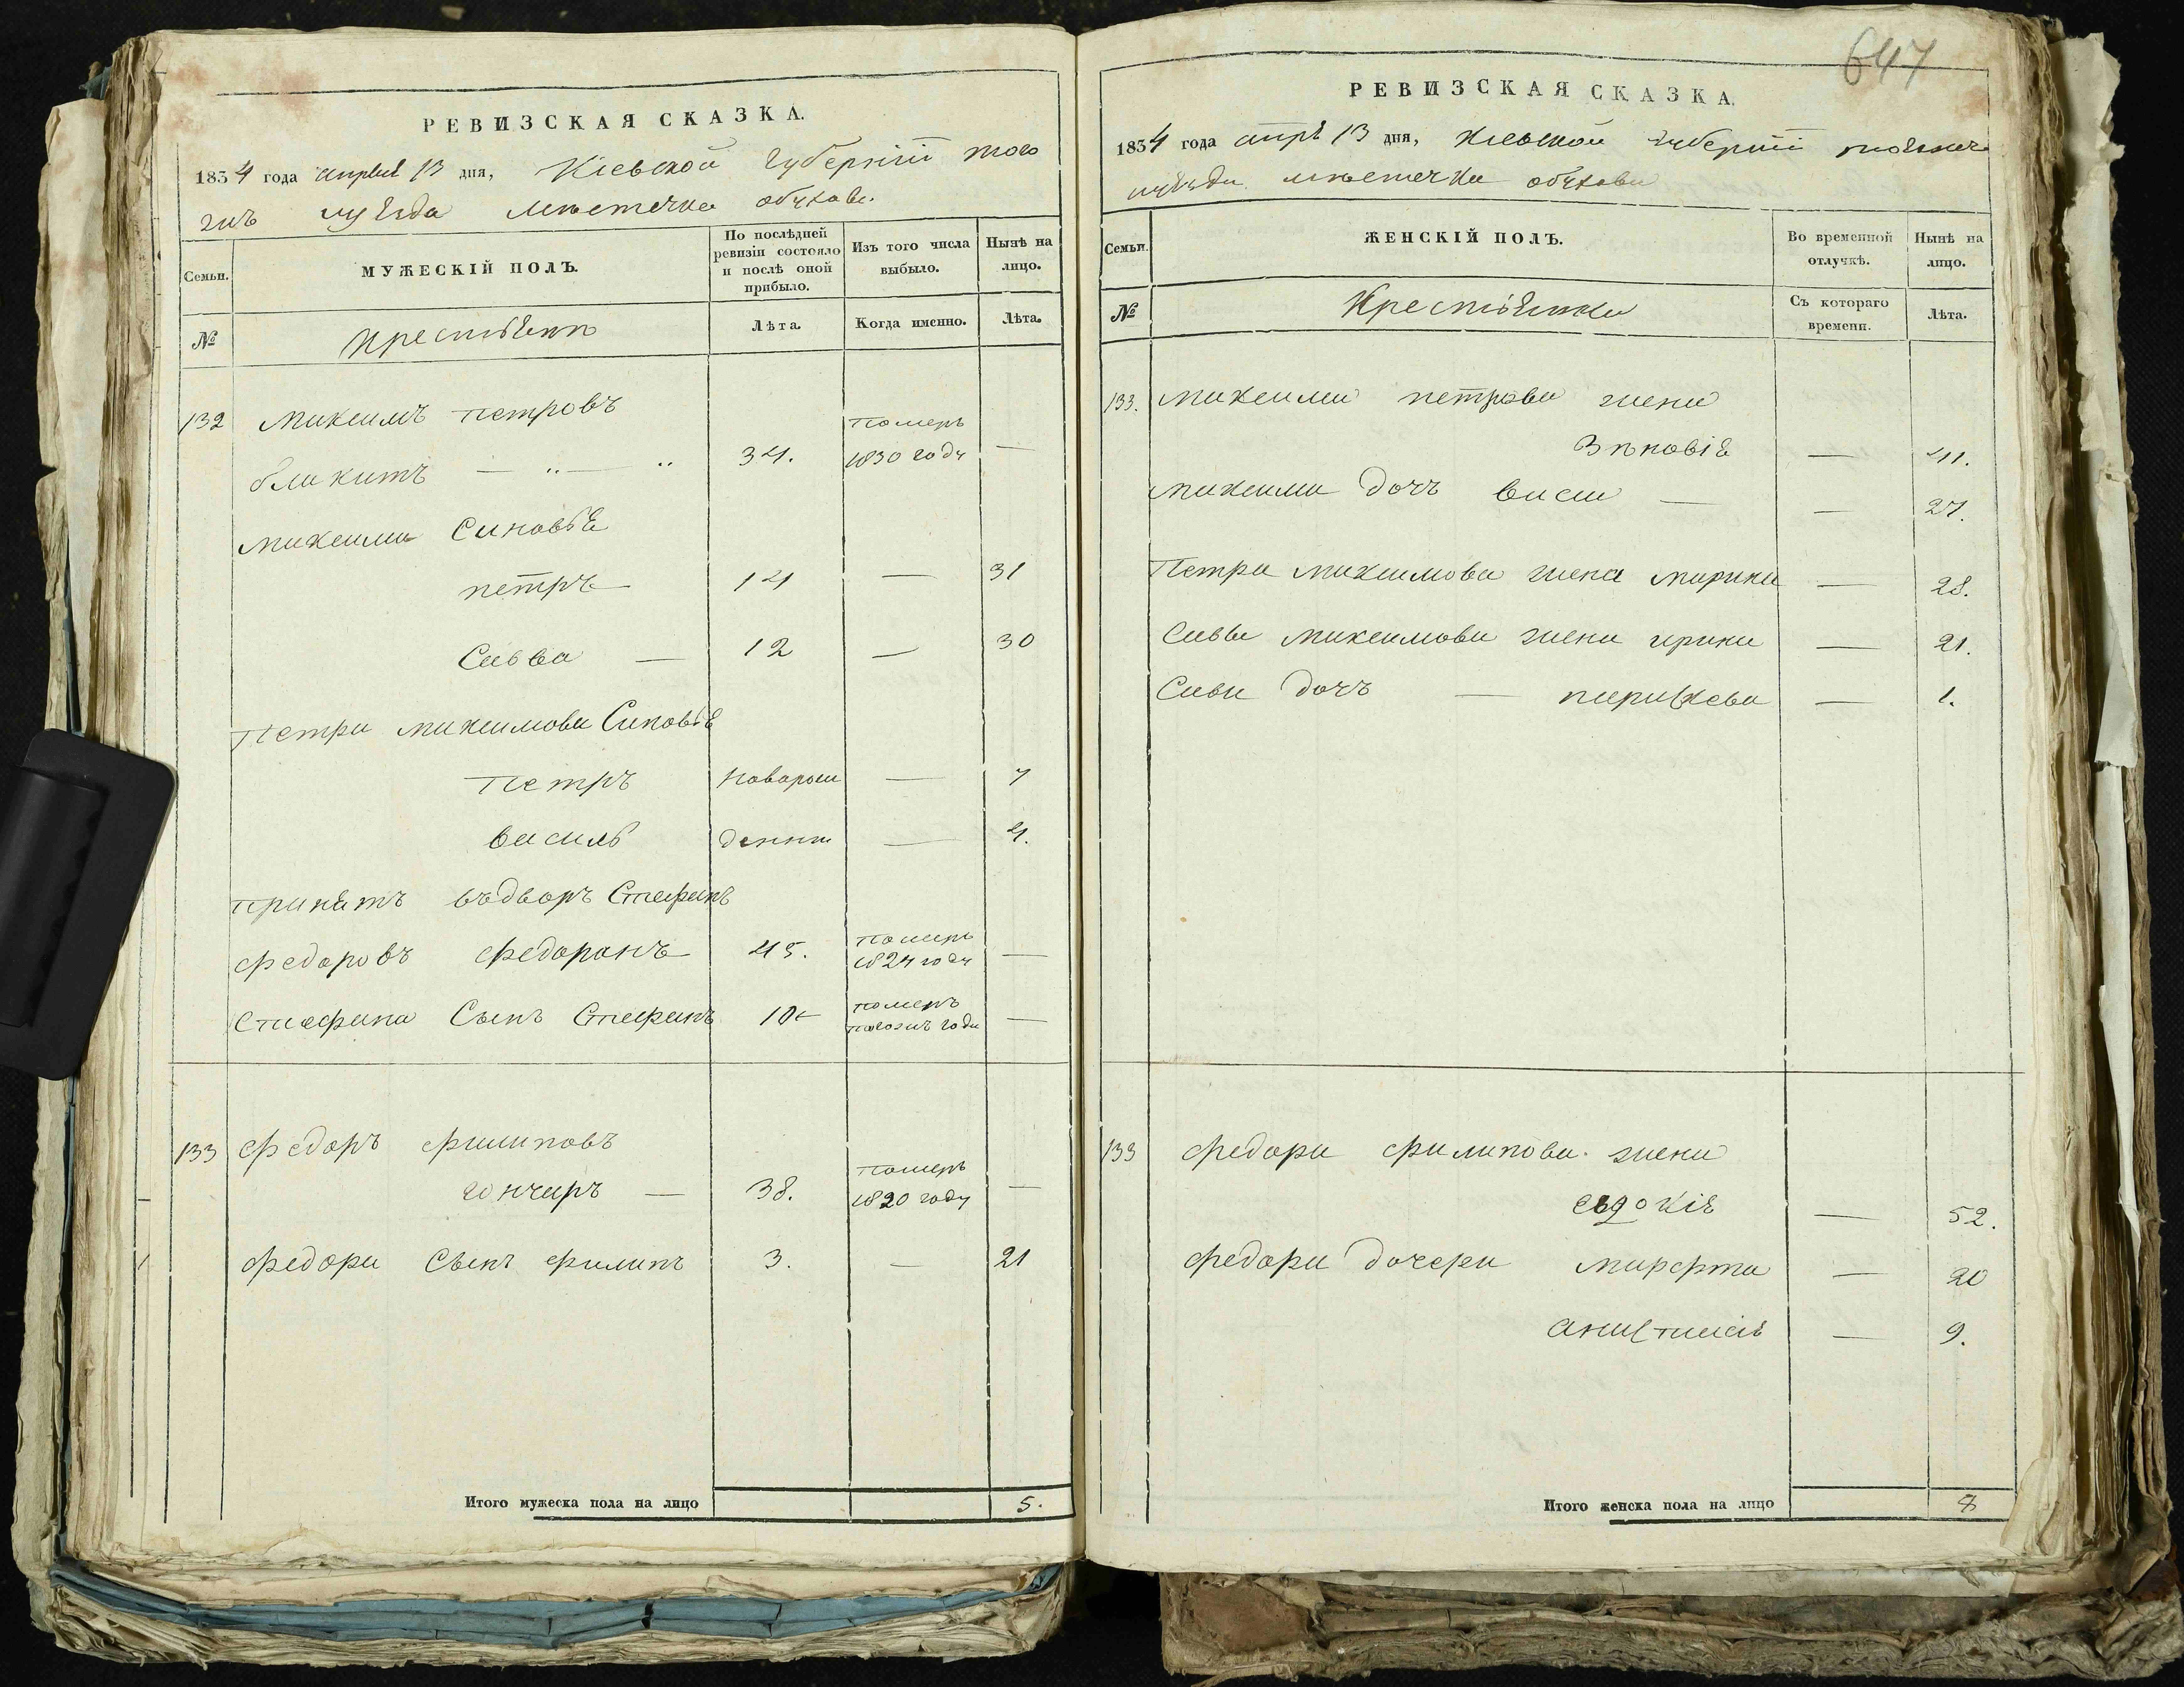 РЕВИЗСКАЯ СКАЗКА.
1834 года апреля 13 дня, Кіевской губерніи того
жъ уезда местечка обухова.
Семьи.
МУЖЕСКІЙ ПОЛЪ.
По послѣдней ревизіи состояло и послѣ оной прибыло.
Изъ того числа выбыло.
Нынѣ на лицо.
№
крестьянъ
Лѣта.
Когда именно.
Лѣта.
132 максимъ петровъ
блакитъ — „ — „ 34. померъ 1830 году —
максима Синовья
петръ 14 — 31
Савва — 12 — 30
Петра максимова Синовья
Петръ новорож — 7
василь денни — 4.
принятъ въдворъ Стефанъ
федоровъ федоранъ 45. померъ 1824 году —
Стефана Сынъ Стефанъ 10 померъ тогожъ года —
133 федоръ филиповъ
гончаръ — 38. померъ 1820 году —
федора Сынъ филипъ 3. — 21
Итого мужеска пола на лицо 5.
647
РЕВИЗСКАЯ СКАЗКА.
1834 года апре 13 дня, Киевской губерніи
уезда местечка обухова
Семьи.
ЖЕНСКІЙ ПОЛЪ.
Во временной отлучкѣ.
Нынѣ на лицо.
№
Крестьянки
Съ котораго времени.
Лѣта.
133. максима петрова жена
Зѣновія — 41.
максима дочъ васса — — 27.
Петра максимова жена марина — 28.
Саввы максимова жена ирина — 21.
Савы дочъ — параскева — 1.
133 федора филипова жена
евдокія — 52.
федора дочери марфта — 20
анастасія — 9.
Итого женска пола на лицо 8